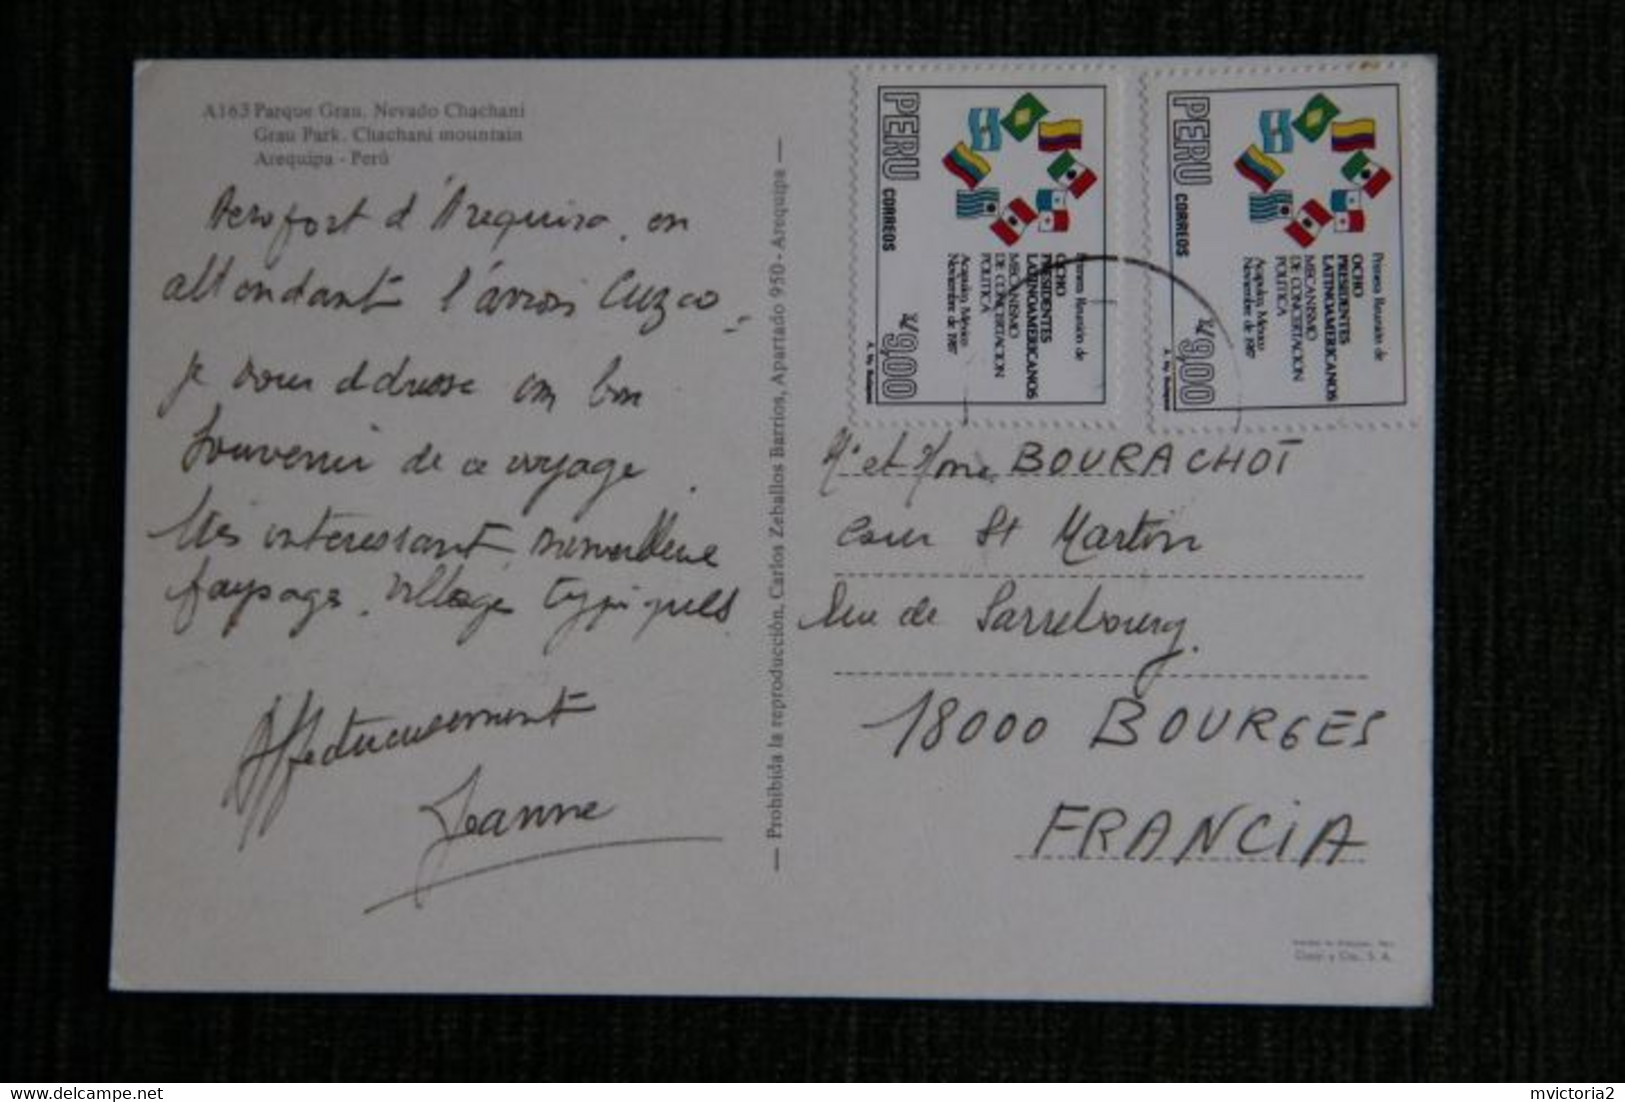 A163 Parque Grau. Nevado Chachani
Grau Park. Chachani mountain
Arequipa - Perú
Aeroport d'Arequipa, en
attendant l'avion Cuzco.
je vous adresse un bon
souvenir de ce voyage.
très intéressant, merveilleux
paysage, village typiques
Affectueusement
Jeanne
— Prohibida la reproducción. Carlos Zeballos Barrios, Apartado 950 - Arequipa —
PERU CORREOS I/ 9,00
Primera Reunión de
OCHO
PRESIDENTES
LATINOAMERICANOS
MECANISMO
DE CONCERTACION
POLITICA
Acapulco, México
Noviembre de 1987
PERU CORREOS I/ 9,00
Primera Reunión de
OCHO
PRESIDENTES
LATINOAMERICANOS
MECANISMO
DE CONCERTACION
POLITICA
Acapulco, México
Noviembre de 1987
Mr et Mme BOURACHOT
Cour St Martin
Rue de Sarrebourg.
18000 BOURGES
FRANCIA
mvictoria2